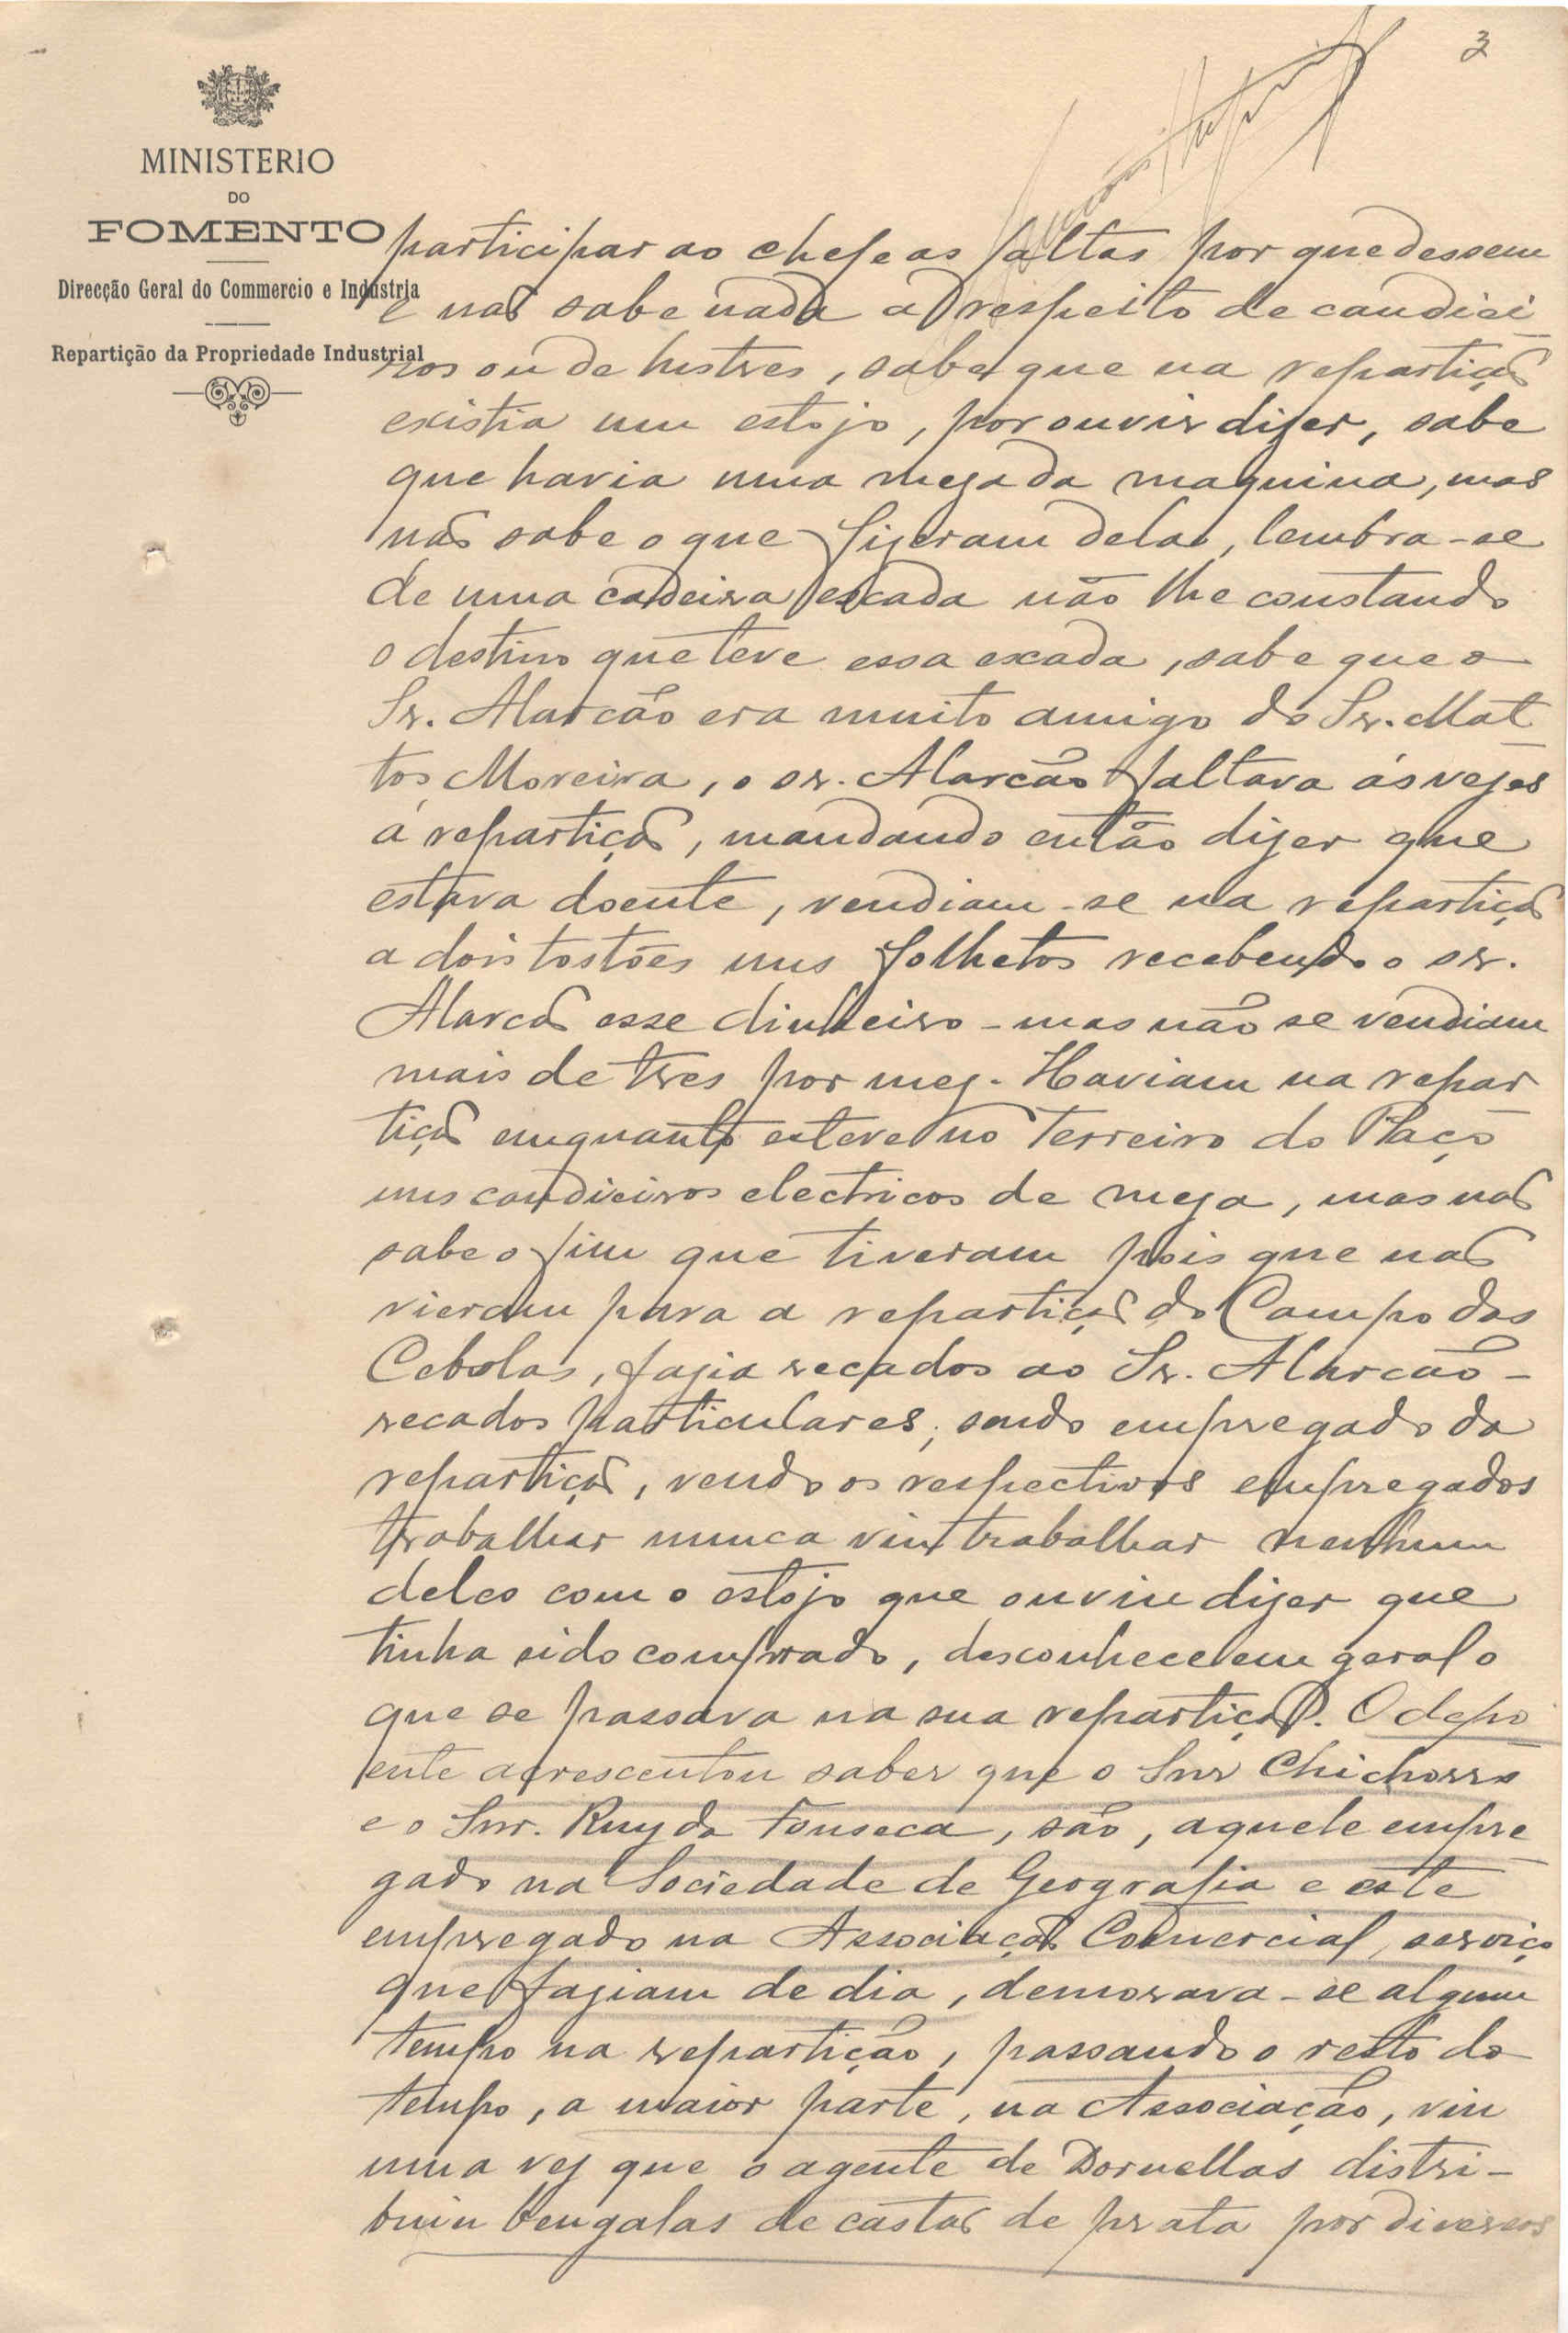 3
MINISTERIO
DO
FOMENTO
Direcção Geral do Commercio e Industria
Repartição da Propriedade Industrial
participar ao chefe as faltas por que dessem
e não sabe nada a respeito de candiei-
ros ou de lustres, sabe que na repartição
existia um estojo, por ouvir dizer, sabe
que havia uma meza da maquina, mas
não sabe o que fizeram dela, lembra-se
de uma cadeira escada não lhe constando
o destino que teve essa escada, sabe que o
Sr. Alarcão era muito amigo do Sr. Mat-
tos Moreira, o sr. Alarcão faltava ás vezes
á repartição, mandando então dizer que
estava doente, vendiam-se na repartição
a dois tostões uns folhetos recebendo o sr.
Alarcão esse dinheiro - mas não se vendiam
mais de tres por mez. Haviam na repar-
tição emquanto esteve no Terreiro do Paço
uns candieiros electricos de meza, mas não
sabe o fim que tiveram pois que não
vieram para a repartição do Campo das
Cebolas, fazia recados ao Sr. Alarcão -
recados particulares; sendo empregado da
repartição, vendo os respectivos empregados
trabalhar nunca viu trabalhar nenhum
deles com o estojo que ouviu dizer que
tinha sido comprado, desconhece em geral o
que se passava na sua repartição. O depo-
ente acrescentou saber que o Snr Chichorro
e o Snr. Ruy da Fonseca, são, aquele empre-
gado na Sociedade de Geografia e este
empregado na Associação Comercial, serviço
que faziam de dia, demorava-se algum
tempo na repartição, passando o resto do
tempo, a maior parte, na Associação, viu
uma vez que o agente de Dornellas distri-
buiu bengalas de castão de prata por diversos